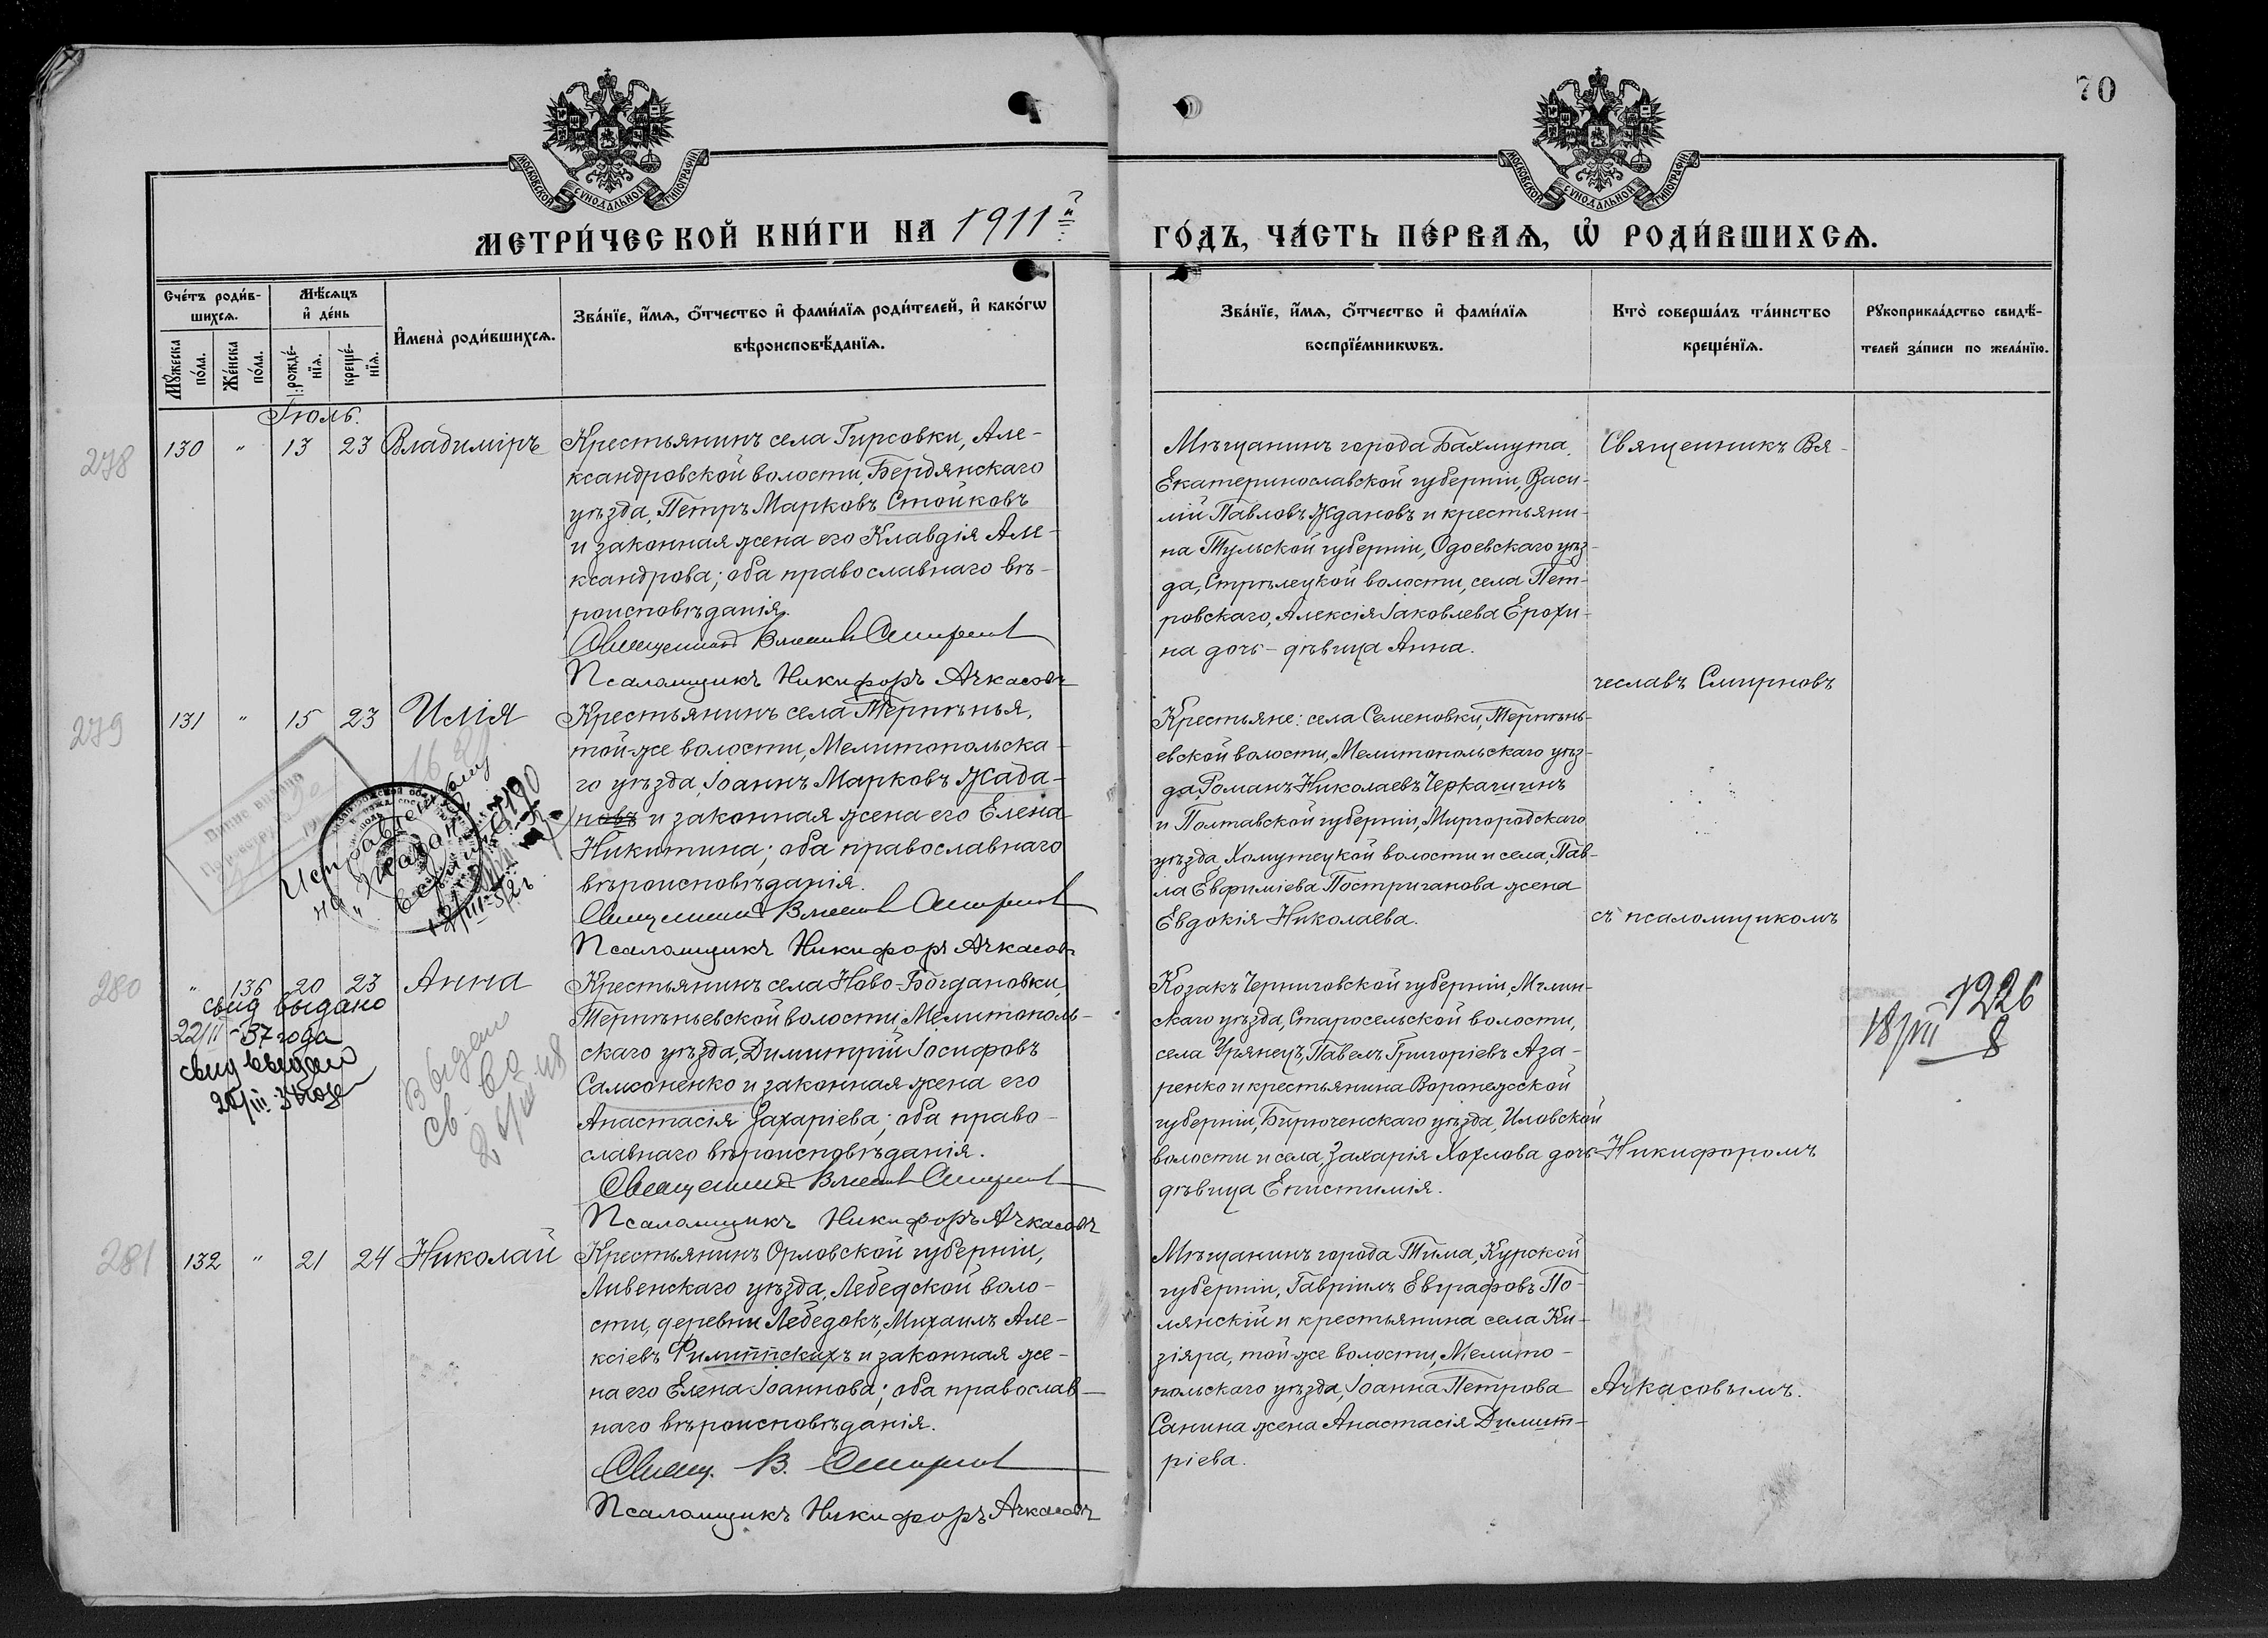 70
МОСКОВСКОЙ СУНОДАЛЬНОЙ ТИПОГРАФІИ
МОСКОВСКОЙ СУНОДАЛЬНОЙ ТИПОГРАФІИ
МЕТРИ́ЧЕСКОЙ КНИ́ГИ НА 1911й
ГО́ДЪ, ЧА́СТЬ ПЕ́РВАѦ, Ѡ҆ РОДИ́ВШИХСѦ.
Сче́тъ роди́в-
шихсѧ.
Мѣ́сѧцъ
и҆ де́нь
Мꙋ́жеска
по́ла.
Же́нска
по́ла.
рожде́-
нїѧ.
креще́-
нїѧ.
И҆мена̀ роди́вшихсѧ.
Зва́нїе, и҆́мѧ, ѻ҆́тчество и҆ фами́лїѧ роди́телей, и҆ како́гѡ
вѣроисповѣ́данїѧ.
Зва́нїе, и҆́мѧ, ѻ҆́тчество и҆ фами́лїѧ
воспрїе́мникѡвъ.
Кто̀ соверша́лъ та́инство
креще́нїѧ.
Рꙋкоприкла́дство свидѣ́-
телей за́писи по жела́нїю.
Іюль.
278
130 " 13 23 Владиміръ
Крестьянинъ села Гирсовки, Але-
ксандровской волости, Бердянскаго
уѣзда, Петръ Марковъ Стойковъ
и законная жена его Клавдія Але-
ксандрова; оба православнаго вѣ-
роисповѣданія.
Священникъ Вячеславъ Смирновъ
Псаломщикъ Никифоръ Ачкасовъ
Мѣщанинъ города Бахмута,
Екатеринославской губерніи, Васи-
лій Павловъ Ждановъ и крестьяни-
на Тульской губерніи, Одоевскаго уѣз-
да, Стрѣлецкой волости, села Пет-
ровскаго, Алексія Іаковлева Ерохи-
на дочь - дѣвица Анна.
Священникъ Вя-
чеславъ Смирновъ
279
131 " 15 23 Илія
Крестьянинъ села Терпѣнья,
той-же волости, Мелитопольска-
го уѣзда, Іоаннъ Марковъ Жада-
новъ и законная жена его Елена
Никитина; оба православнаго
вѣроисповѣданія.
Священникъ Вячеславъ Смирновъ
Псаломщикъ Никифоръ Ачкасовъ
Крестьяне: села Семеновки, Терпѣнь-
евской волости, Мелитопольскаго уѣз-
да, Романъ Николаевъ Черкашинъ
и Полтавской губерніи, Миргородскаго
уѣзда, Хомутецкой волости и села, Пав-
ла Евфиміева Постриганова жена
Евдокія Николаева.
съ псаломщикомъ
280
" 136 20 23 Анна
свид выдано
22/II-37 года
свид выдано
Крестьянинъ села Ново-Богдановки,
Терпѣньевской волости, Мелитополь-
скаго уѣзда, Димитрій Іосифовъ
Самоненко и законная жена его
Анастасія Захаріева; оба право-
славнаго вѣроисповѣданія.
Священникъ Вячеславъ Смирновъ
Псаломщикъ Никифоръ Ачкасовъ
Козакъ Черниговской губерніи, Мглин-
скаго уѣзда, Старосельской волости,
села Урянецъ, Павелъ Григоріевъ Аза-
ренко и крестьянина Воронежской
губерніи, Бирюченскаго уѣзда, Иловской
волости и села, Захарія Хохлова дочь
дѣвица Епистимія.
Никифоромъ
1226
281
132 " 21 24 Николай
Крестьянинъ Орловской губерніи,
Ливенскаго уѣзда, Лебедской воло-
сти, деревни Лебедокъ, Михаилъ Але-
ксіевъ Филиппскихъ и законная же-
на его Елена Іоаннова; оба православ-
наго вѣроисповѣданія.
Свящ. В. Смирновъ
Псаломщикъ Никифоръ Ачкасовъ
Мѣщанинъ города Тима, Курской
губерніи, Гавріилъ Евграфовъ По-
лянскій и крестьянина села Ки-
зіяра, той-же волости, Мелито-
польскаго уѣзда, Іоанна Петрова
Санина жена Анастасія Димит-
ріева.
Ачкасовымъ.